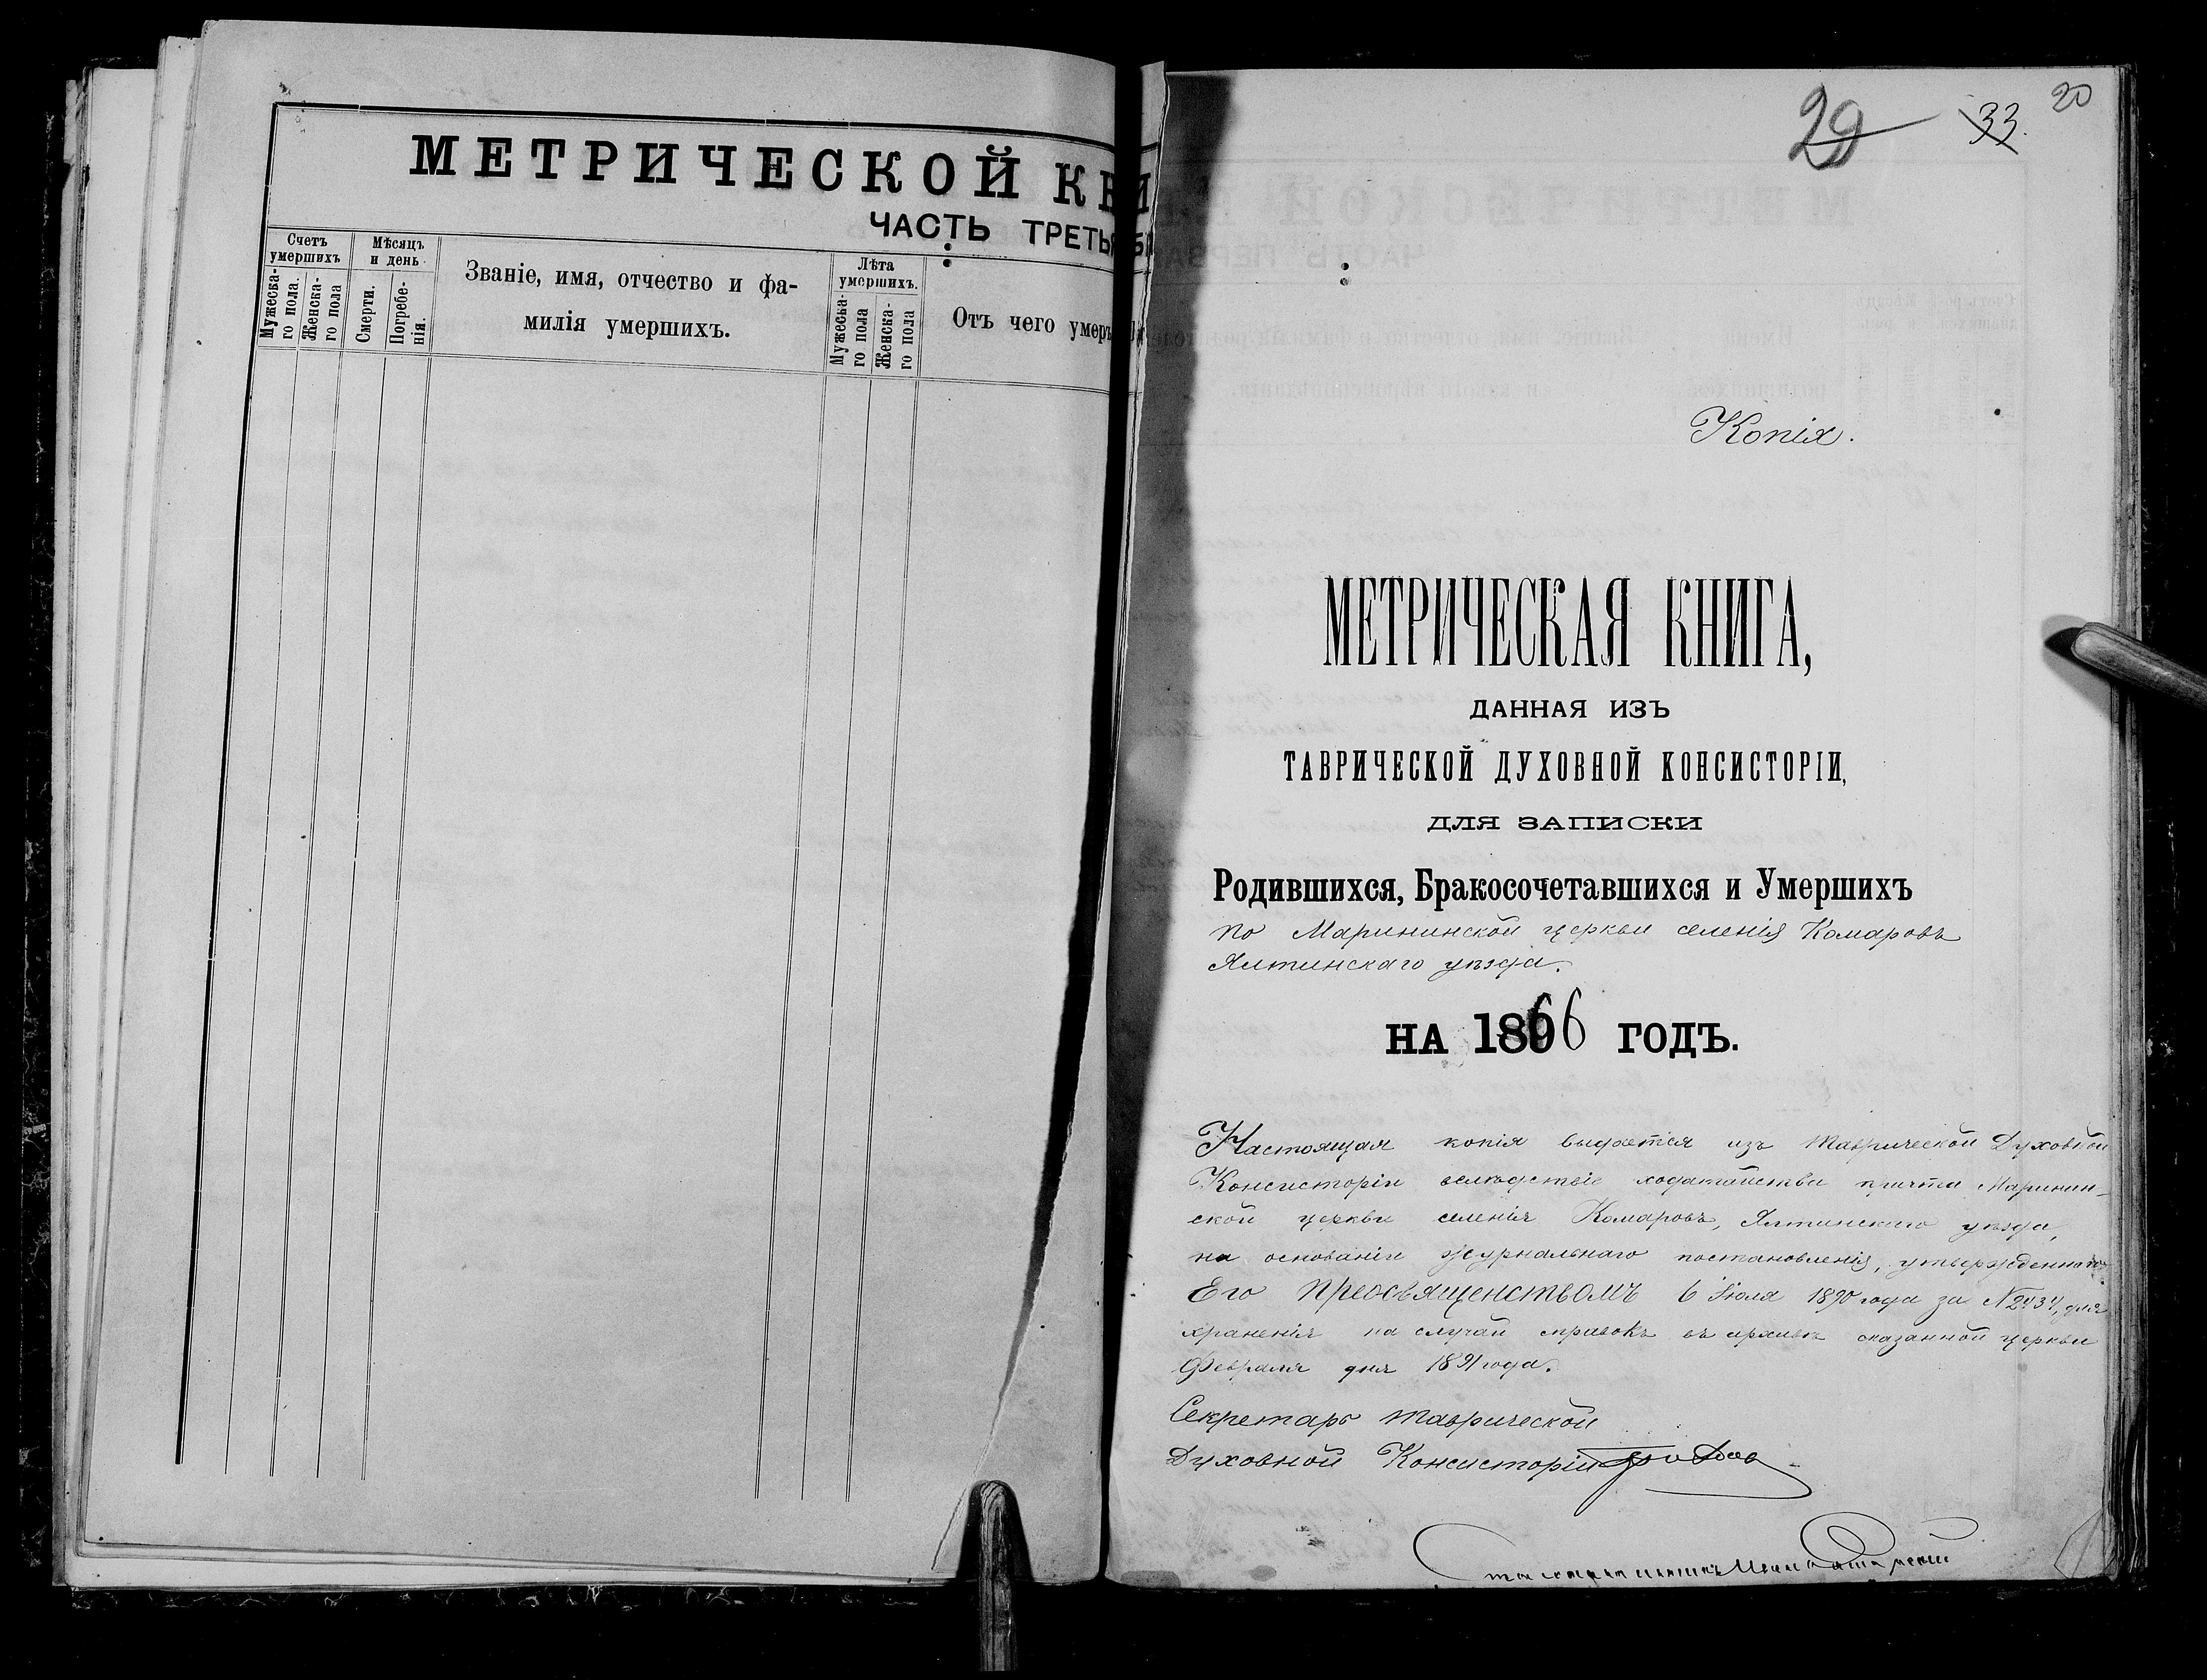 МЕТРИЧЕСКОЙ КНИ
ЧАСТЬ ТРЕТЬЯ
Счетъ умершихъ
Мужеска-го пола.
Женска-го пола
Мѣсяцъ и день.
Смерти.
Погребе-нія.
Званіе, имя, отчество и фа-
милія умершихъ.
Лѣта умершихъ.
Мужеска-го пола
Женска-го пола
Отъ чего умеръ
29 33. 20
Копія.
МЕТРИЧЕСКАЯ КНИГА,
ДАННАЯ ИЗЪ
ТАВРИЧЕСКОЙ ДУХОВНОЙ КОНСИСТОРІИ,
ДЛЯ ЗАПИСКИ
Родившихся, Бракосочетавшихся и Умершихъ
по Марининской церкви селенія Комаровъ
Ялтинскаго уѣзда.
НА 1866 ГОДЪ.
Настоящая копія выдается изъ Таврической Духовной
Консисторіи вслѣдствіе ходатайства причта Маринин-
ской церкви селенія Комаровъ, Ялтинскаго уѣзда,
на основаніи журнальнаго постановленія, утвержденнаго
Его Преосвященствомъ 6 Іюля 1890 года за №2434, для
храненія на случай справокъ въ архивѣ сказанной церкви
Февраля дня 1891 года.
Секретарь Таврической
Духовной Консисторіи